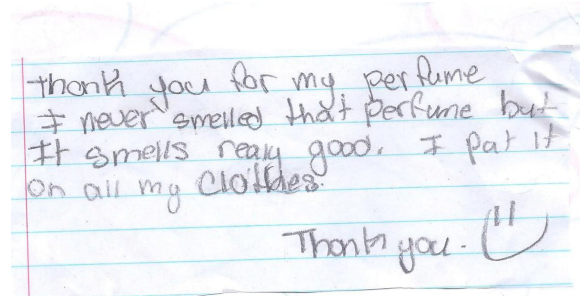 thank you for my perfume
I never smelled that perfume but
It smells realy good. I pat it
on all my clothes.
Thank you. =)